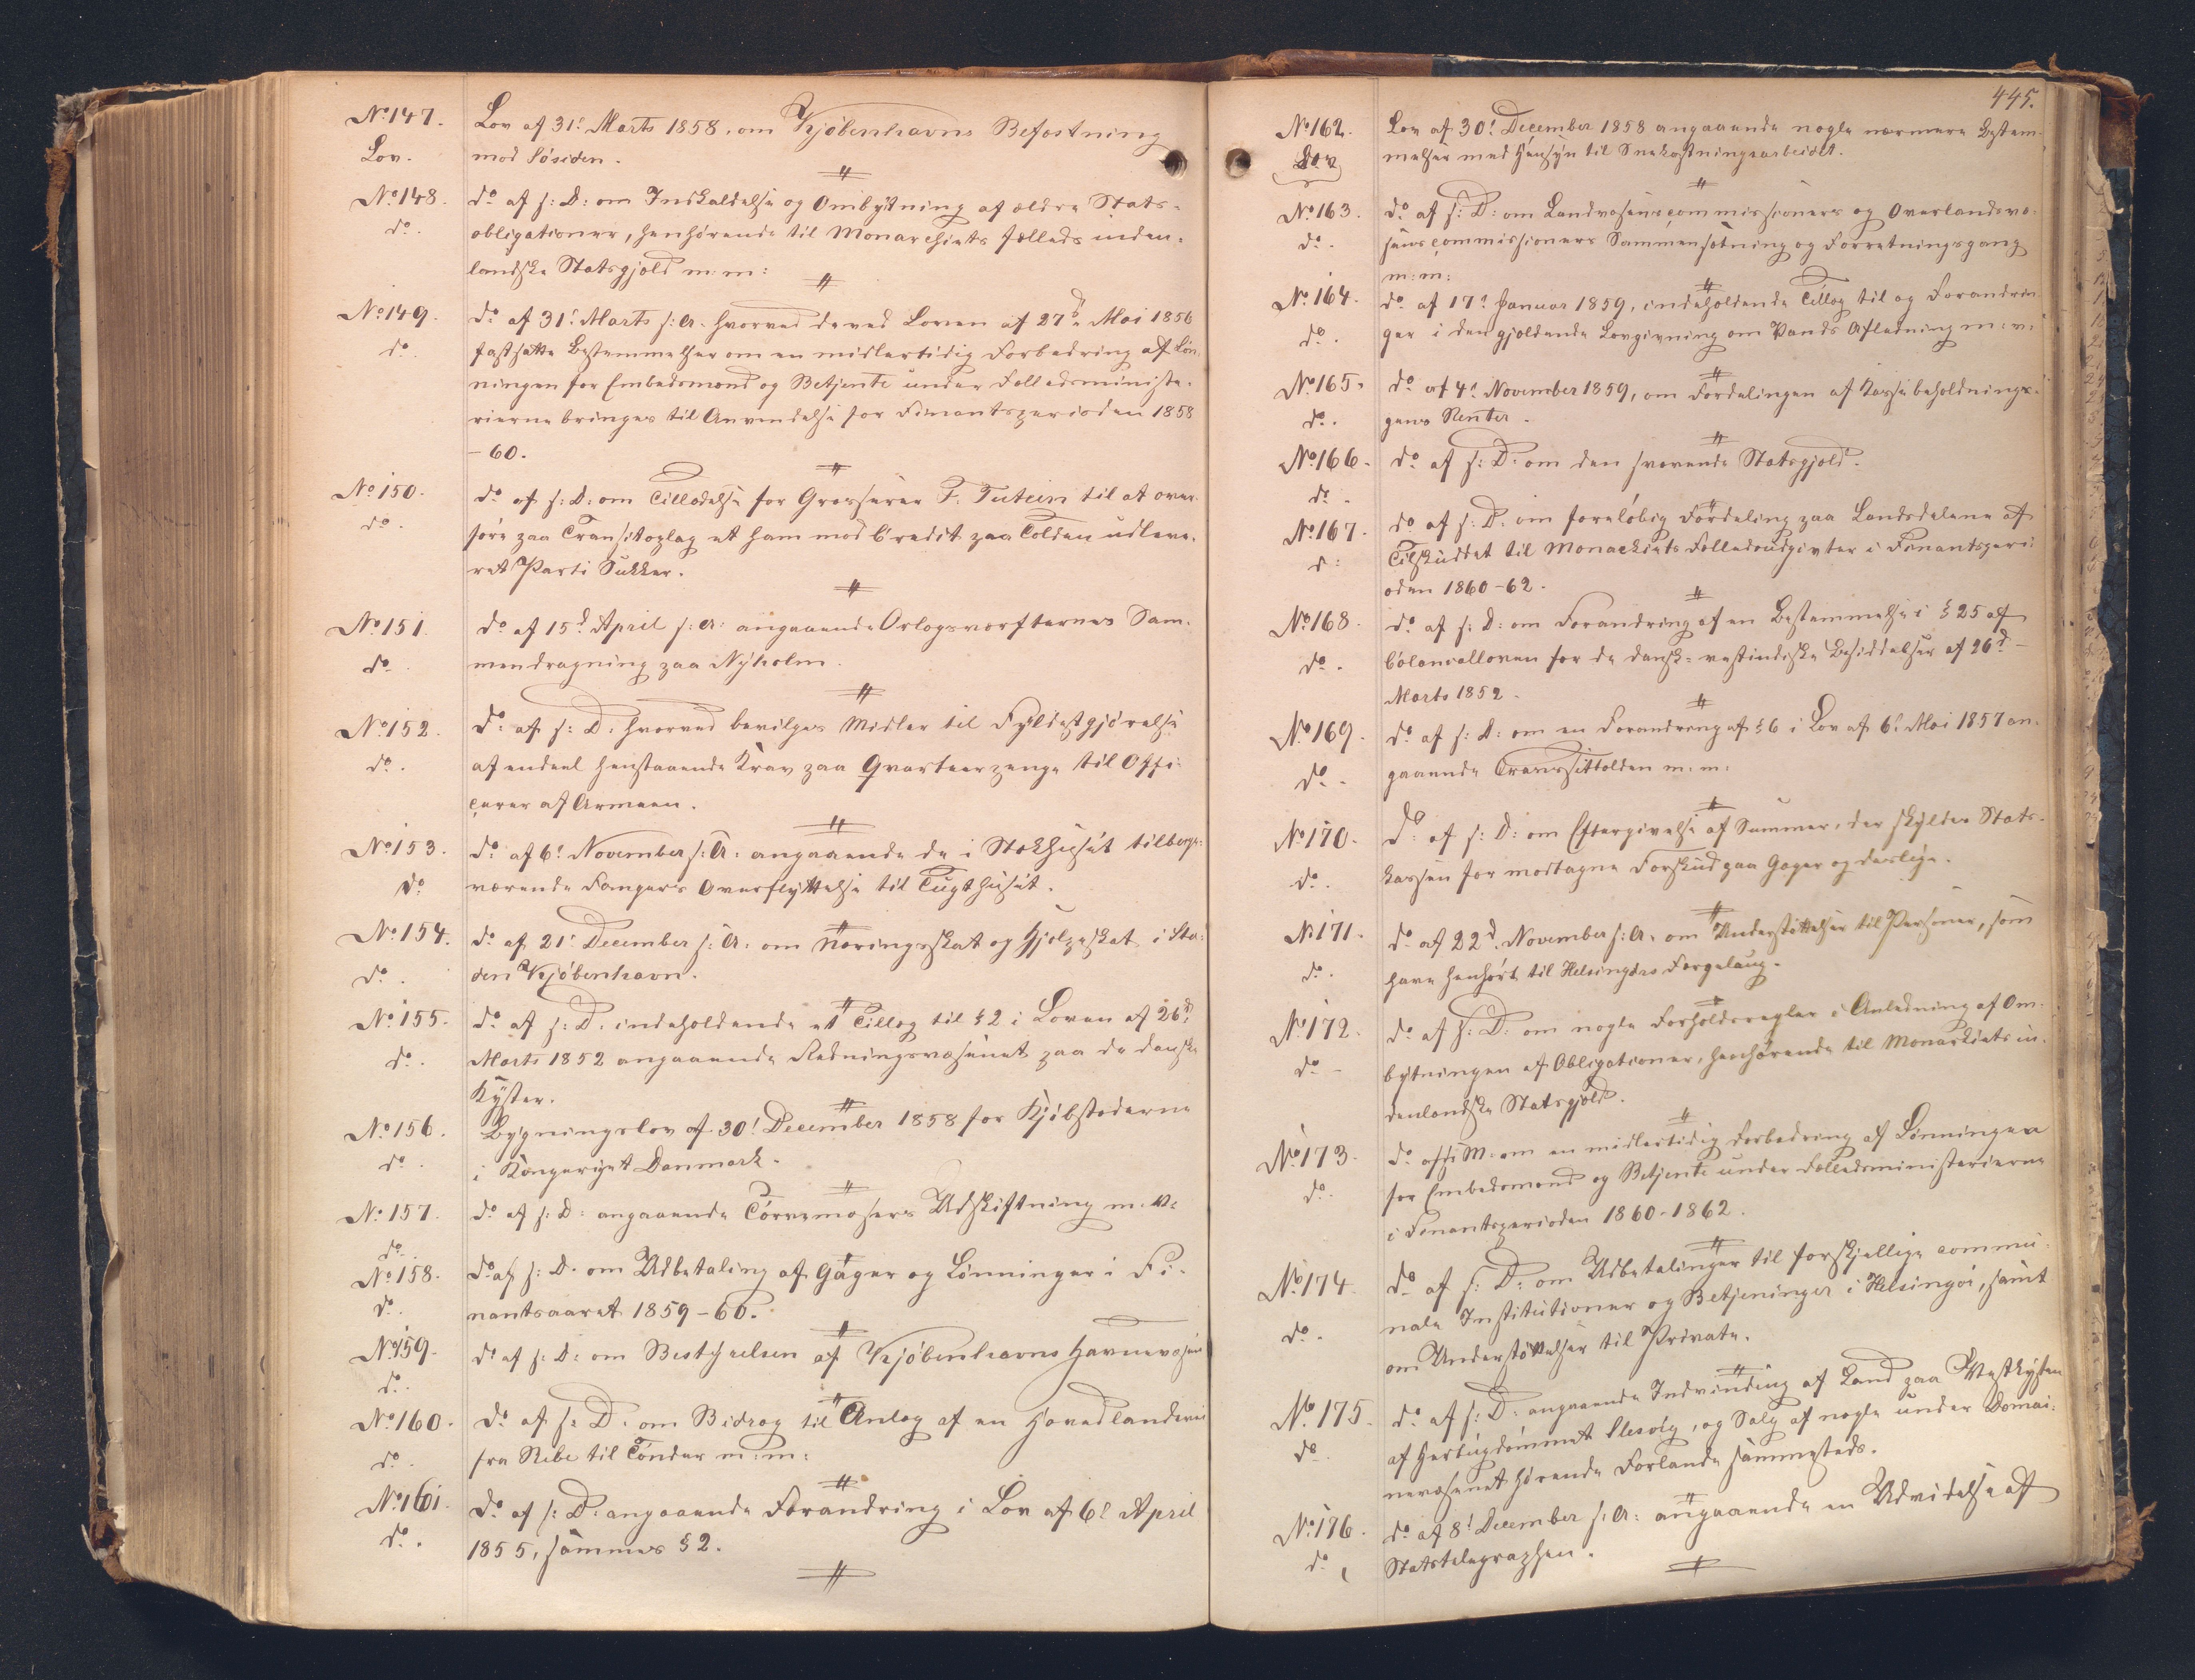 No 147. Lov af 31' Marts 1858, om Kjöbenhavns Befæstning
Lov. mod Sösiden.
No 148. do af s: D: om Indkaldelse og Ombytning af ældre Stats-
do. obligationer, henhörende til Monarchiets fælleds inden-
landske Statsgjæld m: m:
No 149. do af 31' Marts s: A. hvorved de ved Loven af 27de Mai 1856
do. fastsatte Bestemmelser om en midlertidig Forbedring af Løn-
ningen for Embedsmænd og Betjente under Fælledsministe-
rierne bringes til Anvendelse for Finantsperioden 1858
-60.
No 150. do af s: D: om Tilladelse for Grosserer F. Tutein til at over-
do. före paa Transitoplag et ham mod Credit paa Tolden udleve-
ret Parti Sukker.
No 151. do af 15d April s: A: angaaende Orlogsværfternes Sam-
do. mendragning paa Nyholm.
No 152. do af s: D: hvorved bevilges Midler til Fyldestgjörelse
do. af endeel henstaaende Krav paa Qvarteerpenge til Offi-
cerer af Armeen.
No 153. do af 6' November s: A: angaaende de i Stokhuset tilbage-
do værende Fangers Overflyttelse til Tugthuset.
No 154. do af 21' December s: A: om Næringsskat og Hjelpeskat i Sta-
do. den Kjöbenhavn.
No 155. do af s: D. indeholdende et Tillæg til § 2 i Loven af 26d
do. Marts 1852 angaaende Redningsvæsenet paa de danske
Kyster.
No 156. Bygningslov af 30' December 1858 for Kjöbstæderne
do. i Kongeriget Danmark.
No 157. do af s: D: angaaende Törvemosers Udskiftning m. v:
do.
No 158. do af s: D. om Udbetaling af Gager og Lönninger i Fi-
do. nantsaaret 1859-60.
No 159. do af s: D: om Bestyrelsen af Kjöbenhavns Havnevæsen
do.
No 160. do af s: D. om Bidrag til Anlæg af en Hovedlandevei
do. fra Ribe til Tönder m: m:
No 161. do af s: D: angaaende Forandring i Lov af 6' April
do. 1855, sammes § 2.
445.
No 162. Lov af 30' December 1858 angaaende nogle nærmere Bestem-
Lov melser med Hensyn til Snekastningsarbeidet.
No 163. do af s: D: om Landvæsenscommissioners og Overlandsvæ-
do. senscommissioners Sammensætning og Forretningsgang
m: m:
No 164. do af 17' Januar 1859, indeholdende Tillæg til og Forandrin-
do. ger i den gjældende Lovgivning om Vands Afledning m: v:
No 165. do af 4' November 1859, om Fordelingen af Kassebeholdnings-
do. gens Renter.
No 166. do af s: D: om den svævende Statsgjæld.
do.
No 167. do af s: D: om forelöbig Fordeling paa Landsdelene af
d: Tilskuddet til Monarkiets Fælledsudgivter i Finantsperi-
oden 1860-62.
No 168. do af s: D: om Forandring af en Bestemmelse i § 25 af
do. Coloniallloven for de dansk-vestindiske Besiddelser af 26d
Marts 1852.
No 169. do af s: D: om en Forandring af § 6 i Lov af 6' Mai 1857 an-
do. gaaende Transittolden m: m:
No 170. do af s: D: om Eftergivelse af Summer, der skyldes Stats-
do. kassen for modtagne Forskud paa Gager og deslige.
No 171. do af 22d November s: A: om Understöttelser til Personer, som
do. have henhört til Helsingörs Færgelaug.
No 172. do af s: D: om nogle Forholdsregler i Anledning af Om-
do bytningen af Obligationer, henhörende til Monarkiets in-
denlandske Statsgjæld.
No 173. do af s: om en midlertidig Forbedring af Lönningen
do. for Embedsmænd og Betjente under Fælledsministerierne
i Finantsperioden 1860-1862.
No 174. do af s: D: om Udbetalinger til forskjellige commu-
do. nale Institutioner og Betjeninger i Helsingör, samt
om Understöttelser til Private.
No 175. do af s: D: angaaende Indvinding af Land paa Vestkysten
do af Hertugdömmet Slesvig, og Salg af nogle under Domai-
nevæsenet hörende Forlande sammesteds.
No 176. do af 8' December s: A: angaaende en Udvidelse af
do. Statstelegraphen.